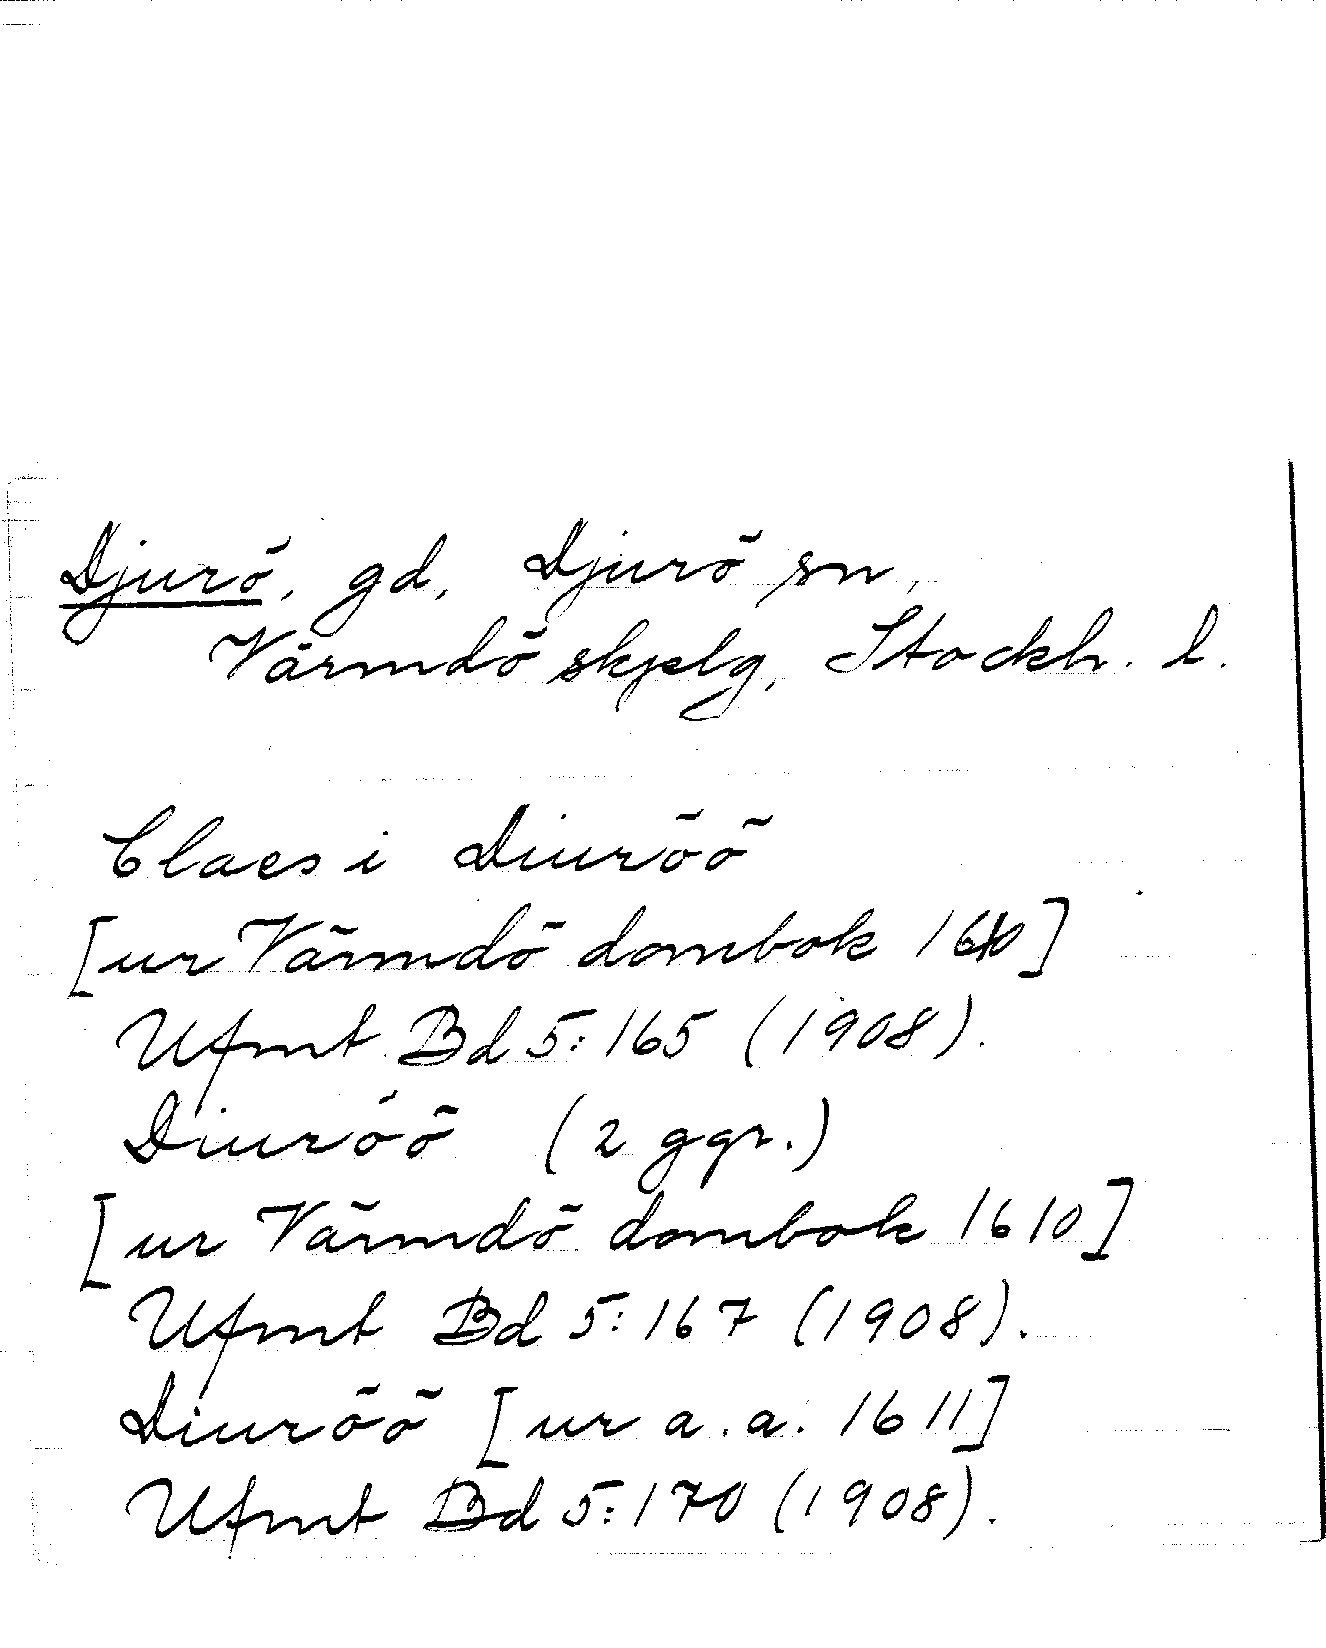 Djurö, gd, Djurö sn,
Värmdö skjelg, Stockh. l.
Claes i Diuröö
[ur Värmdö dombok 1610]
Ufmt Bd 5:165 (1908).
Diuröö (2 ggr.)
[ur Värmdö dombok 1610]
Ufmt Bd 5:167 (1908).
Diuröö [ur a.a. 1611]
Ufmt Bd 5:170 (1908).